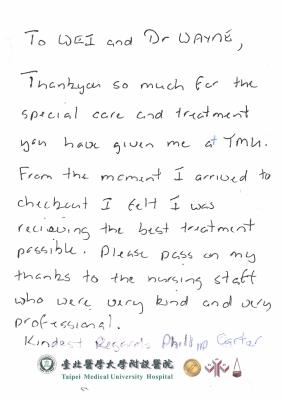 To WEI and Dr WAYNE,
Thankyou so much for the
special care and treatment
you have given me at TMH.
From the moment I arrived to
checkout I felt I was
recieving the best treatment
possible. Please pass on my
thanks to the nursing staff
who were very kind and very
professional.
Kindest Regards Phillip Carter
臺北醫學大學附設醫院
Taipei Medical University Hospital